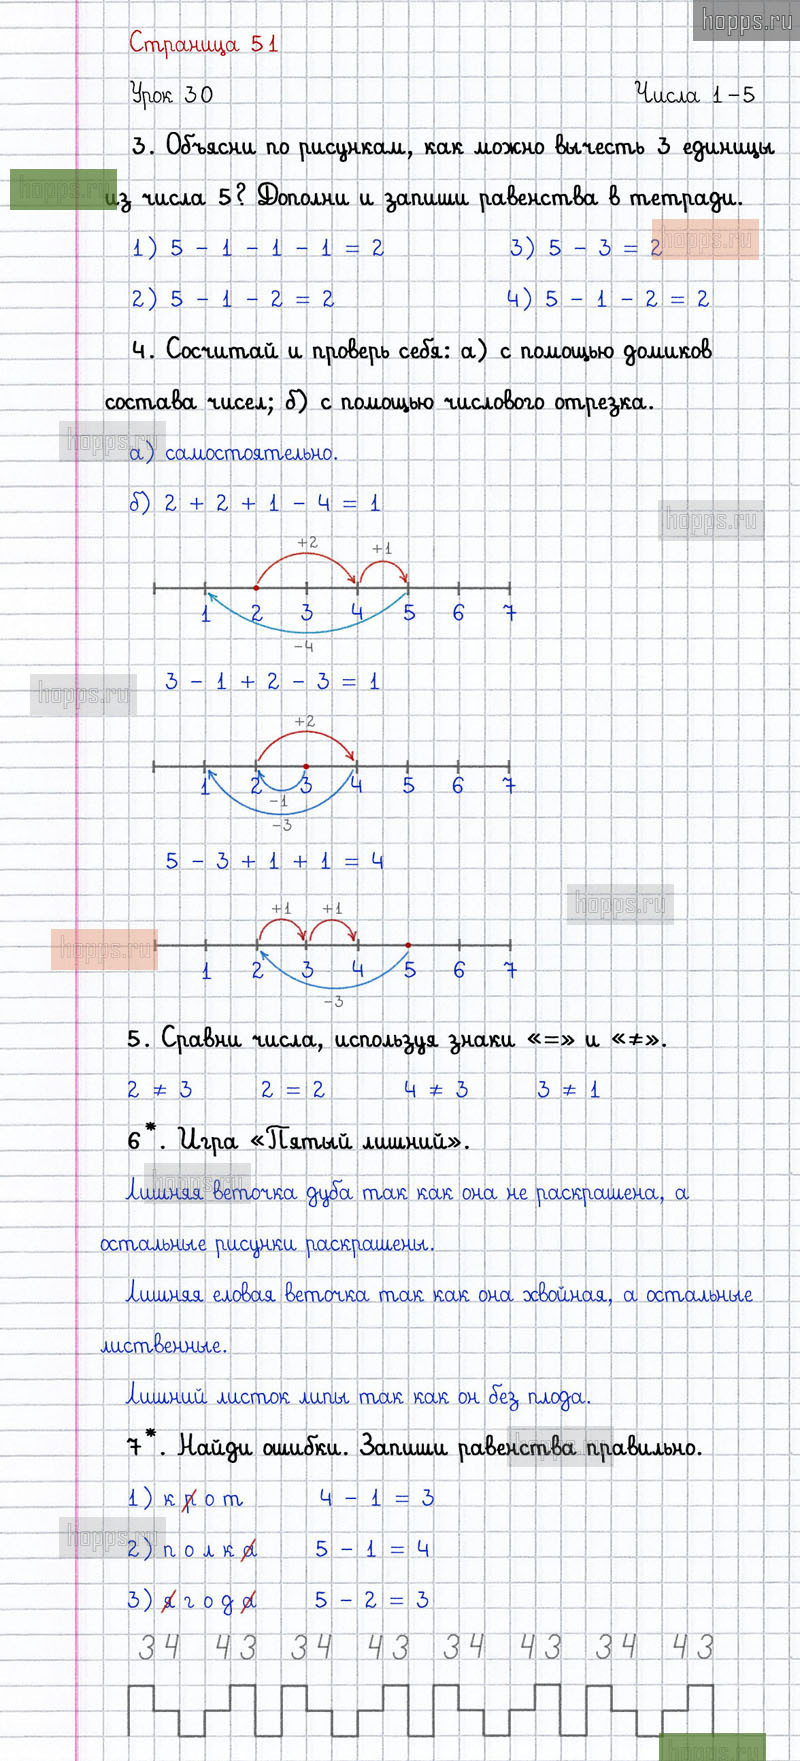 hopps.ru
Страница 51
Урок 30 Числа 1-5
3. Объясни по рисункам, как можно вычесть 3 единицы
hopps.ru
из числа 5? Дополни и запиши равенства в тетради.
hopps.ru
1) 5 - 1 - 1 - 1 = 2 3) 5 - 3 = 2
2) 5 - 1 - 2 = 2 4) 5 - 1 - 2 = 2
4. Сосчитай и проверь себя: а) с помощью домиков
состава чисел; б) с помощью числового отрезка.
hopps.ru
а) самостоятельно.
б) 2 + 2 + 1 - 4 = 1
hopps.ru
+2 +1
1 2 3 4 5 6 7
-4
3 - 1 + 2 - 3 = 1
hopps.ru
+2
1 2 3 4 5 6 7
-1
-3
5 - 3 + 1 + 1 = 4
hopps.ru
+1 +1
hopps.ru
1 2 3 4 5 6 7
-3
5. Сравни числа, используя знаки «=» и «≠».
2 ≠ 3 2 = 2 4 ≠ 3 3 ≠ 1
6*. Игра «Пятый лишний».
hopps.ru
Лишняя веточка дуба так как она не раскрашена, а
остальные рисунки раскрашены.
Лишняя еловая веточка так как она хвойная, а остальные
лиственные.
Лишний листок липы так как он без плода.
7*. Найди ошибки. Запиши равенства правильно.
hopps.ru
1) крот 4 - 1 = 3
hopps.ru
2) полка 5 - 1 = 4
3) ягода 5 - 2 = 3
34 43 34 43 34 43 34 43
hopps.ru